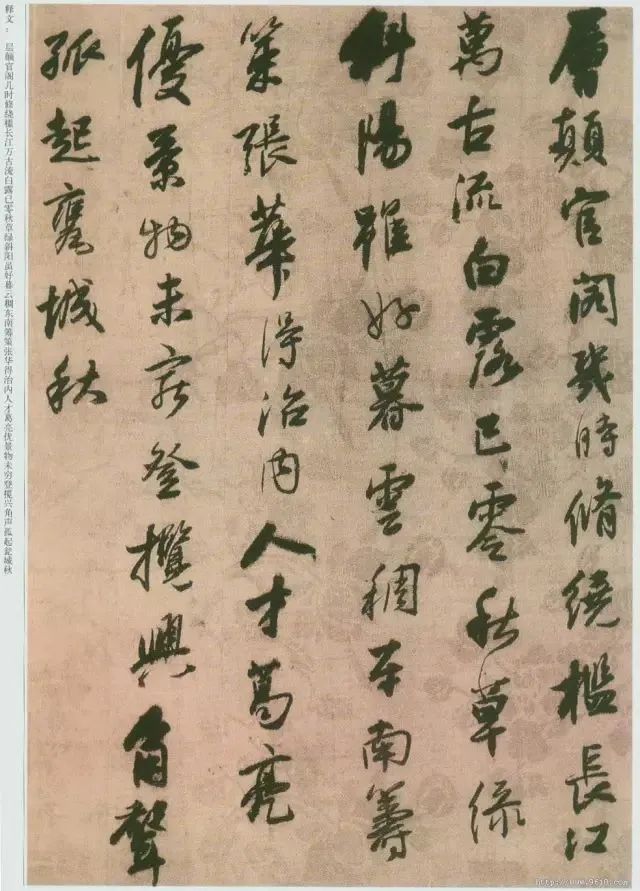 層顛官閣幾時脩繞檻長江
萬古流白露已零秋草綠
斜陽雖好暮雲稠東南籌
策張華得治內人才葛亮
優景物未窮登攬興角聲
孤起甕城秋
释文：层颠官阁几时修绕槛长江万古流白露已零秋草绿斜阳虽好暮云稠东南筹策张华得治内人才葛亮优景物未穷登揽兴角声孤起瓮城秋
http://www.9610.com